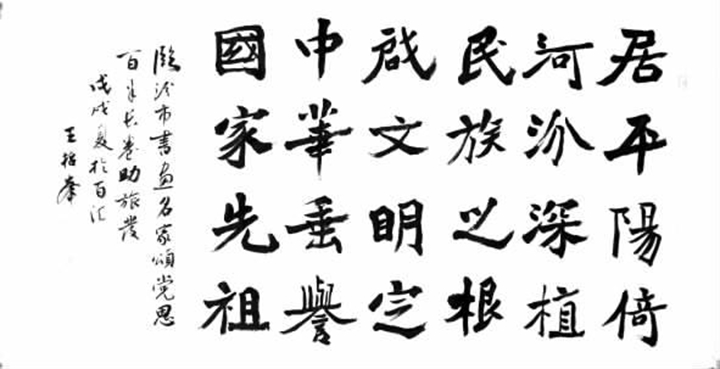 居平陽倚
河汾深植
民族之根
啟文明定
中華垂譽
國家先祖
臨汾市書画名家頌党恩
百米长卷助旅发
戊戌夏於百汇
王拴奉